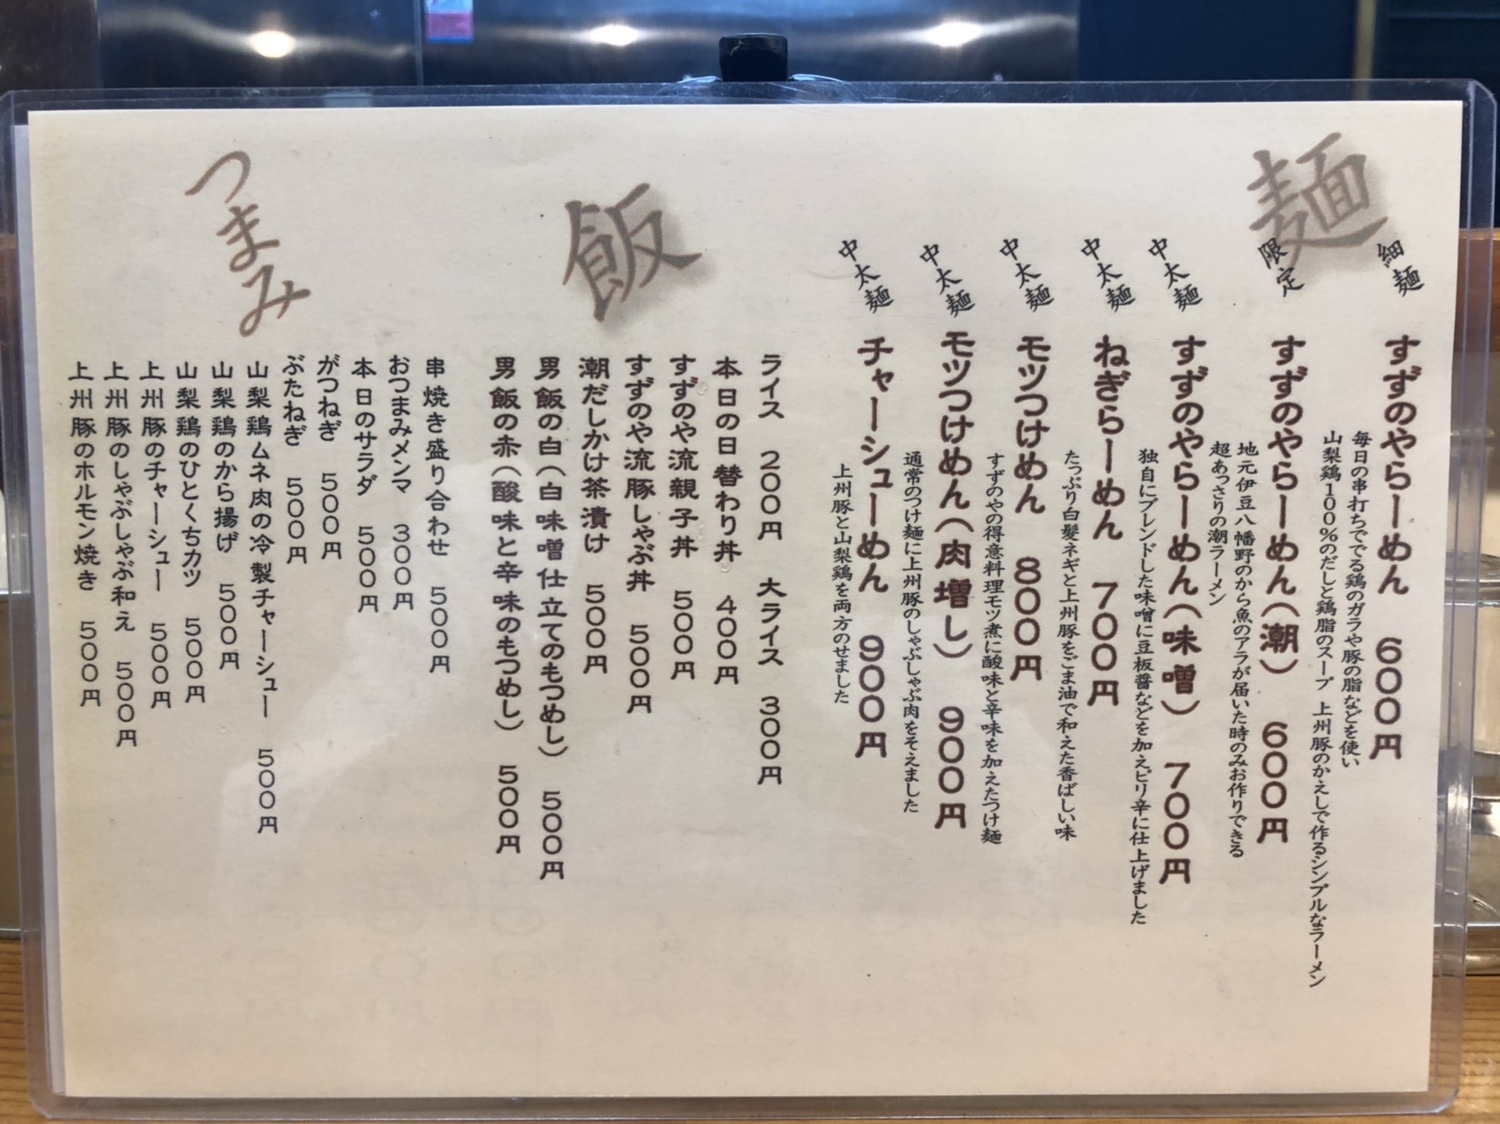 麺
細麺
すずのやらーめん 600円
毎日の串打ちででる鶏のガラや豚の脂などを使い
山梨鶏100％のだしと鶏脂のスープ 上州豚のかえしで作るシンプルなラーメン
限定
すずのやらーめん（潮） 600円
地元伊豆八幡野のから魚のアラが届いた時のみお作りできる
超あっさりの潮ラーメン
中太麺
すずのやらーめん（味噌） 700円
独自にブレンドした味噌に豆板醤などを加えピリ辛に仕上げました
中太麺
ねぎらーめん 700円
たっぷり白髪ネギと上州豚をごま油で和えた香ばしい味
中太麺
モツつけめん 800円
すずのやの得意料理モツ煮に酸味と辛味を加えたつけ麺
中太麺
モツつけめん（肉増し） 900円
通常のつけ麺に上州豚のしゃぶしゃぶ肉をそえました
中太麺
チャーシューめん 900円
上州豚と山梨鶏を両方のせました
飯
ライス 200円 大ライス 300円
本日の日替わり丼 400円
すずのや流親子丼 500円
すずのや流豚しゃぶ丼 500円
潮だしかけ茶漬け 500円
男飯の白（白味噌仕立てのもつめし） 500円
男飯の赤（酸味と辛味のもつめし） 500円
つまみ
串焼き盛り合わせ 500円
おつまみメンマ 300円
本日のサラダ 500円
がつねぎ 500円
ぶたねぎ 500円
山梨鶏ムネ肉の冷製チャーシュー 500円
山梨鶏のから揚げ 500円
山梨鶏のひとくちカツ 500円
上州豚のチャーシュー 500円
上州豚のしゃぶしゃぶ和え 500円
上州豚のホルモン焼き 500円